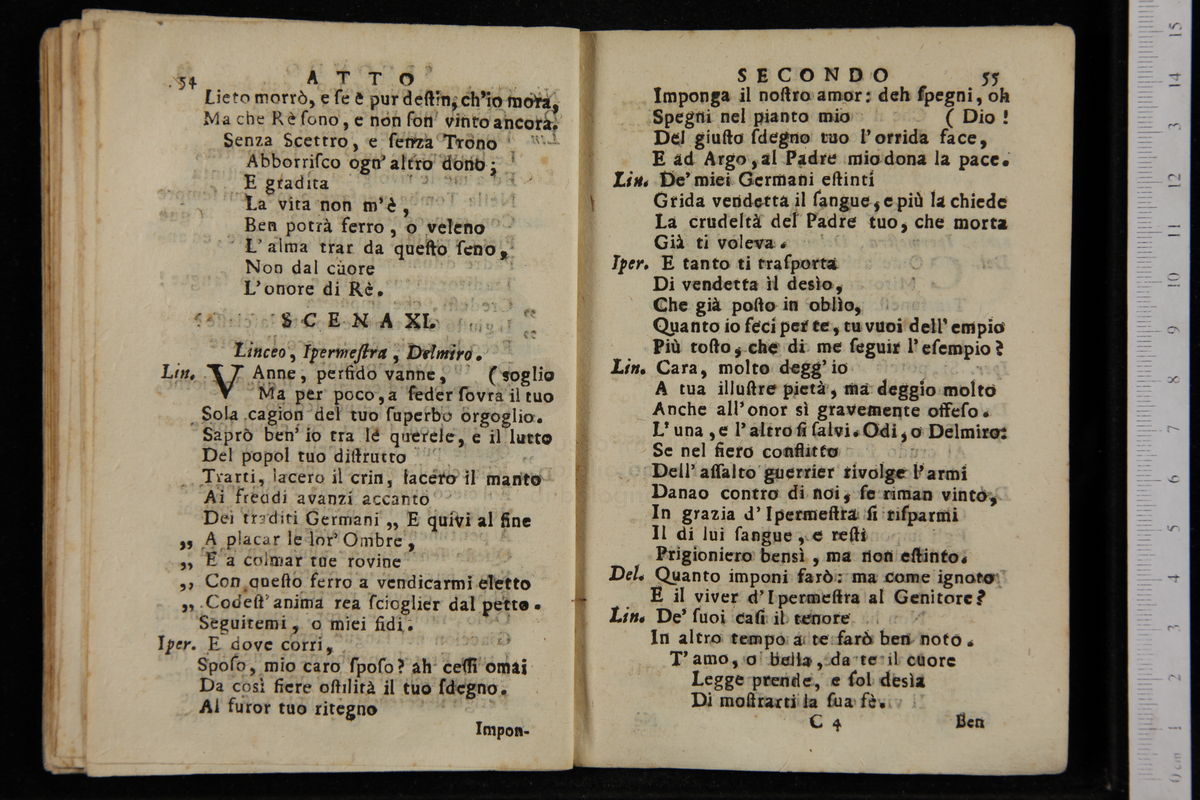 54 ATTO
Lieto morrò, e ſe è pur deſtin, ch'io mora,
Ma che Rè ſono, e non ſon vinto ancora.
Senza Scettro, e ſenza Trono
Abborriſco ogn' altro dono;
E gradita
La vita non m'è,
Ben potrà ferro, o veleno
L' alma trar da queſto ſeno,
Non dal cuore
L'onore di Rè.
SCENA XI.
Linceo, Ipermeſtra, Delmiro.
Lin. VAnne, perfido vanne, (ſoglio
Ma per poco, a ſeder ſovra il tuo
Sola cagion del tuo ſuperbo orgoglio.
Saprò ben' io tra le querele, e il lutto
Del popol tuo diſtrutto
Trarti, lacero il crin, lacero il manto
Ai freddi avanzi accanto
Dei traditi Germani „ E quivi al fine
„ A placar le lor' Ombre,
„ E a colmar tue rovine
„ Con queſto ferro a vendicarmi eletto
„ Codeſt' anima rea ſcioglier dal petto.
Seguitemi, o miei fidi.
Iper. E dove corri,
Spoſo, mio caro ſpoſo? ah ceſſi omai
Da così fiere oſtilità il tuo ſdegno.
Al furor tuo ritegno
Impon-
SECONDO 55
Imponga il noſtro amor: deh ſpegni, oh
Spegni nel pianto mio (Dio!
Del giuſto ſdegno tuo l'orrida face,
E ad Argo, al Padre mio dona la pace.
Lin. De' miei Germani eſtinti
Grida vendetta il ſangue, e più la chiede
La crudeltà del Padre tuo, che morta
Già ti voleva.
Iper. E tanto ti traſporta
Di vendetta il desìo,
Che già poſto in oblìo,
Quanto io feci per te, tu vuoi dell' empio
Più toſto, che di me ſeguir l'eſempio?
Lin. Cara, molto degg' io
A tua illuſtre pietà, ma deggio molto
Anche all' onor sì gravemente offeſo.
L' una, e l'altro ſi ſalvi. Odi, o Delmiro:
Se nel fiero conflitto
Dell' aſſalto guerrier rivolge l'armi
Danao contro di noi, ſe riman vinto,
In grazia d'Ipermeſtra ſi riſparmi
Il di lui ſangue, e reſti
Prigioniero bensì, ma non eſtinto.
Del. Quanto imponi farò: ma come ignoto
E il viver d'Ipermeſtra al Genitore?
Lin. De' ſuoi caſi il tenore
In altro tempo a te farò ben noto.
T' amo, o bella, da te il cuore
Legge prende, e ſol desìa
Di moſtrarti la ſua fè.
C 4 Ben